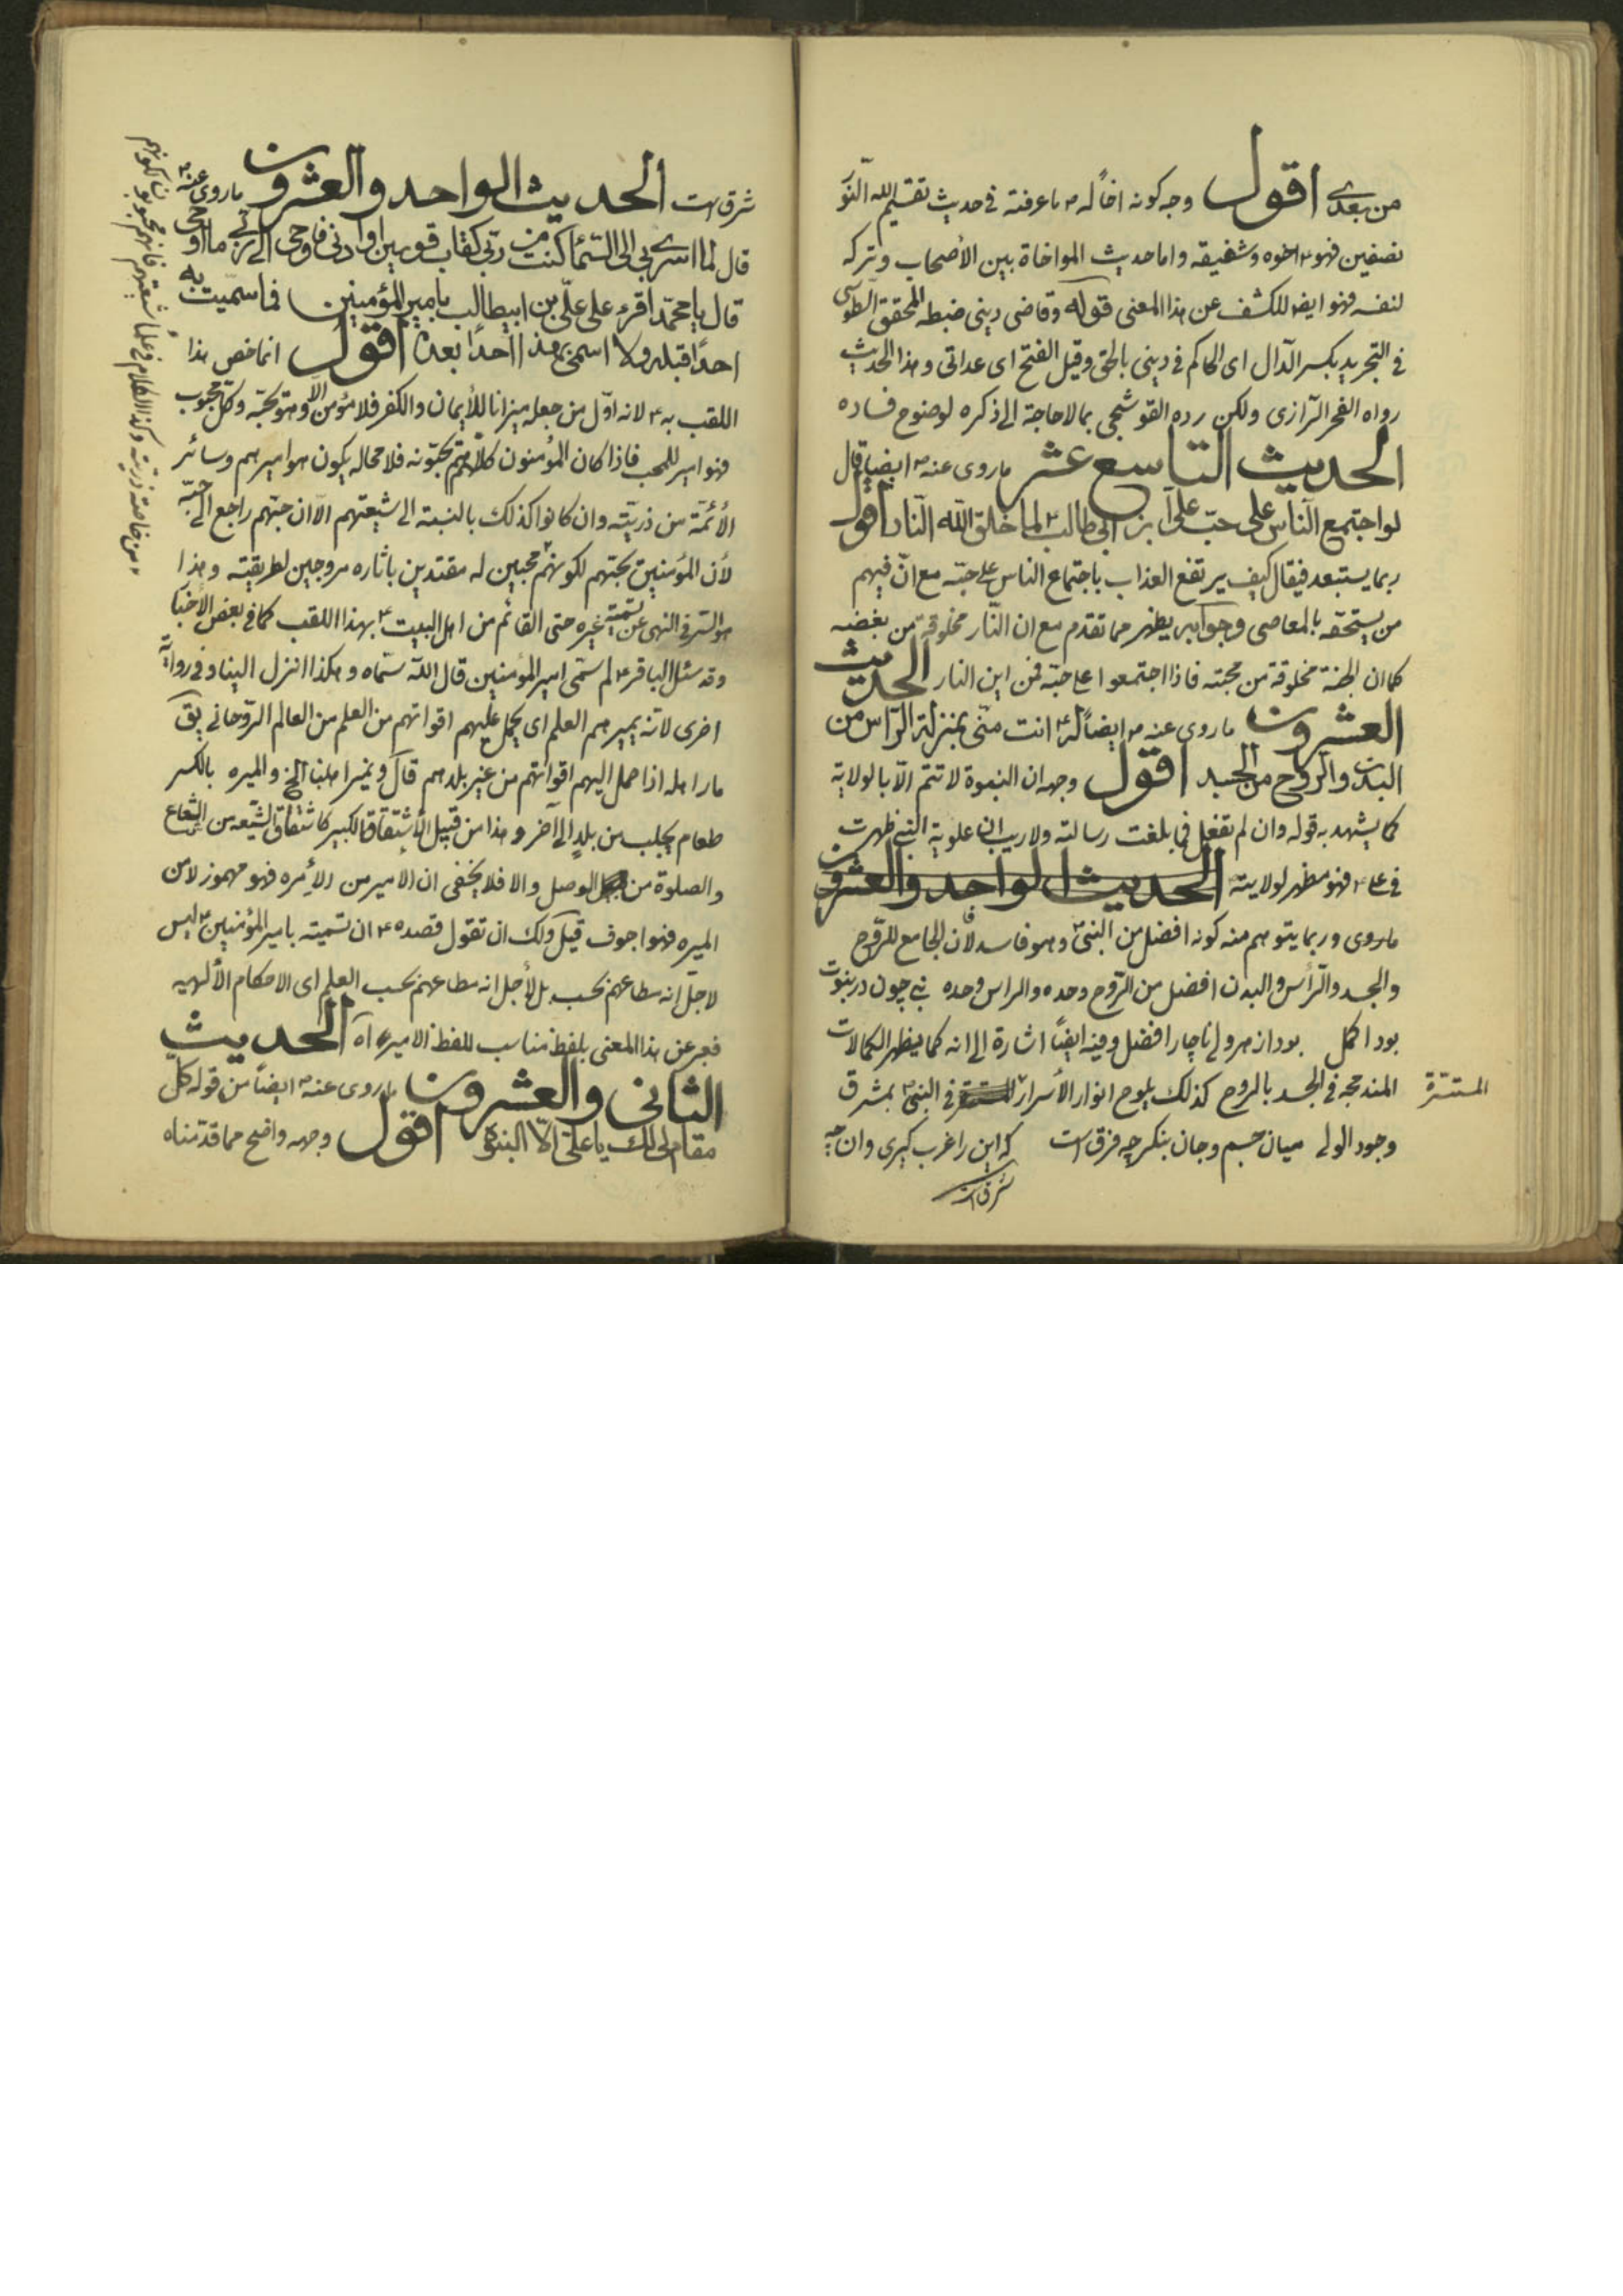 من بعدي اقول وجه كونه اخاً له ص ما عرفته في حديث تقسيم الله النور
نصفين فهو ع اخوه وشفيقه واما حديث المواخاة بين الأصحاب وتركه
لنفسه فهو ايضا للكشف عن هذا المعنى قوله وقاضى دينى ضبطه المحقق الطوسى
في التجريد بكسر الدال اى الحاكم في دينى بالحق وقيل الفتح اى عداتى وهذا الحديث
رواه الفخر الرازى ولكن رده القوشجى بما لا حاجة الى ذكره لوضوح فساده
الحديث التاسع عشر ماروى عنه ص ايضا قال
لو اجتمع الناس على حبّ علىّ بن ابى طالب ع لما خلق الله النار اقول
ربما يستبعد فيقال كيف يرتفع العذاب باجتماع الناس على حبّه مع انّ فيهم
من يستحقه بالمعاصى وجوابه يظهر مما تقدم مع ان النّار مخلوقة من بغضه
كما ان الجنة مخلوقة من محبته فاذا اجتمعوا على حبّه فمن اين النار الحديث
العشرون ماروى عنه ص ايضاً انت منّى بمنزلة الرّاس من
البدن والروح من الجسد اقول وجهه ان النبوة لا تتم الّا بالولاية
كما يشهد به قوله وان لم تفعل فما بلغت رسالته ولا ريب ان علوية النبى ظهرت
في على ع فهو مظهر لولايته الحديث الواحد والعشرون
ماروى وربما يتوهم منه كونه افضل من النبىّ ص وهو فاسد لأن الجامع للرّوح
والجسد والرّأس والبدن افضل من الرّوح وحده والراس وحده نبى چون در نبوت
بود اكمل بود از هر ولى ناچار افضل وفيه ايضًا اشارة الى انه كما يظهر الكمالات
المندمجه في الجسد بالروح كذلك يلوح انوار الأسرار المستترة في النبى ص بمشرق
المستترة
وجود الولى ميان جسم وجان بنگر چه فرق است كه اين را غرب گيرى وان چه
شرق است
شرق است الحديث الواحد والعشرون ماروى عنه ص
قال لما اسرى بى الى السّماء كنت من ربّى كقاب قوسين او ادنى فاوحى الى ربّى ما اوحى
قال يا محمّد اقرء على علّى بن ابيطالب بامير المؤمنين فما سمّيت به
احدًا قبله ولا اسمّى بهذا احدًا بعده اقول انما خص هذا
اللقب به ع لانه اوّل من جعله ميزانا للأيمان والكفر فلا مؤمن الّا وهو يحبّه وكل محبوب
فهو امير للمحب فاذا كان المؤمنون كلّهم يحبّونه فلا محاله يكون هو اميرهم وسائر
الأئمّة من ذريّته وان كانوا كذلك بالنسبة الى شيعتهم الّا ان حبّهم راجع الى حبّه
لأن المؤمنين يحبّهم لكونهم محبين له مقتدين باثاره مروجين لطريقته وهذا
هو السّر في النهى عن تسمية غيره حتى القائم من اهل البيت ع بهذا اللقب كما في بعض الأخبار
وقد سئل الباقر ع لم سمّى امير المؤمنين قال الله سمّاه وهكذا انزل الينا وفي رواية
اخرى لانّه يميرهم العلم اى يحمل عليهم اقواتهم من العلم من العالم الرّوحانى يق
مار اهله اذا حمل اليهم اقواتهم من غير بلدهم قال ونمير اهلنا الخ والميره بالكسر
طعام يجلب من بلدٍ الى آخر وهذا من قبيل الأشتقاق الكبير كاشتقاق الشّيعه من الشّعاع
والصلوة من الوصل والا فلا يخفى ان الامير من الأمره فهو مهموز لا من
الميره فهو اجوف قيل ولك ان تقول قصده ع ان تسميته بامير المؤمنين ليس
لاجل انه مطاعهم بحسب بل لأجل انه مطاعهم بحسب العلم اى الاحكام الألهيه
فعبر عن هذا المعنى بلفظ مناسب للفظ الامير اه الحديث
الثانى والعشرون ماروى عنه ص ايضاً من قوله كل
مقام لى لك يا على الّا النبوّة اقول وجهه واضح مما قدّمناه